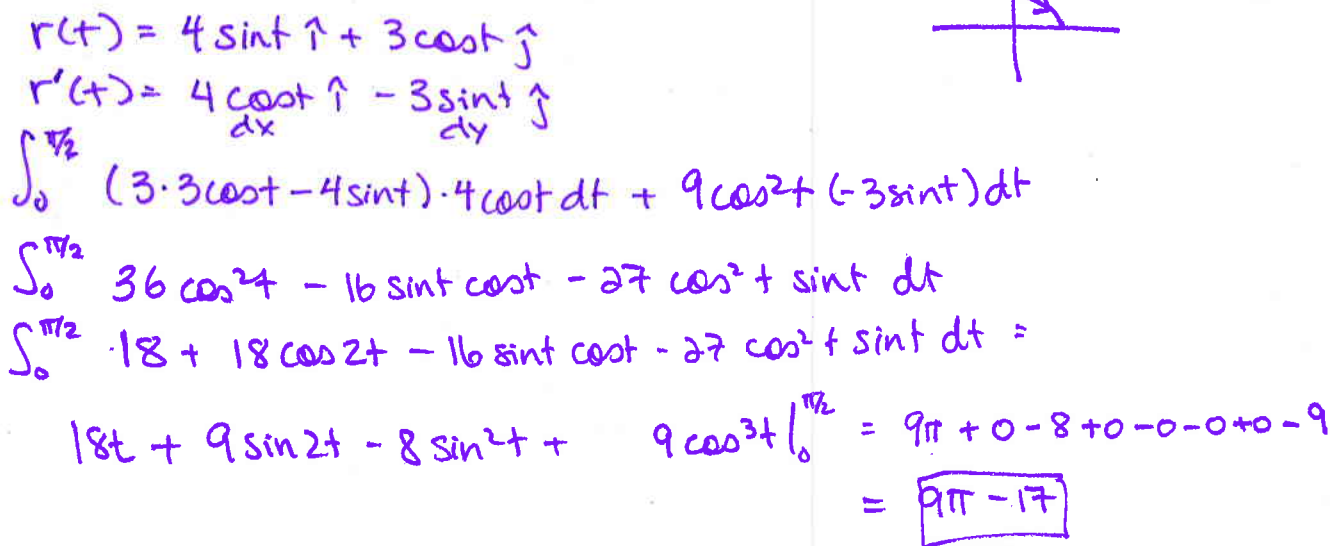 r(t) = 4 sint î + 3 cost ĵ
r'(t) = 4 cost î - 3 sint ĵ
dx dy
∫₀^π/2 (3·3cost - 4sint)·4cost dt + 9cos²t (-3sint)dt
∫₀^π/2 36 cos²t - 16 sint cost - 27 cos²t sint dt
∫₀^π/2 18 + 18 cos2t - 16 sint cost - 27 cos²t sint dt =
18t + 9 sin2t - 8 sin²t + 9 cos³t |₀^π/2 = 9π + 0 - 8 + 0 - 0 - 0 + 0 - 9
= 9π - 17